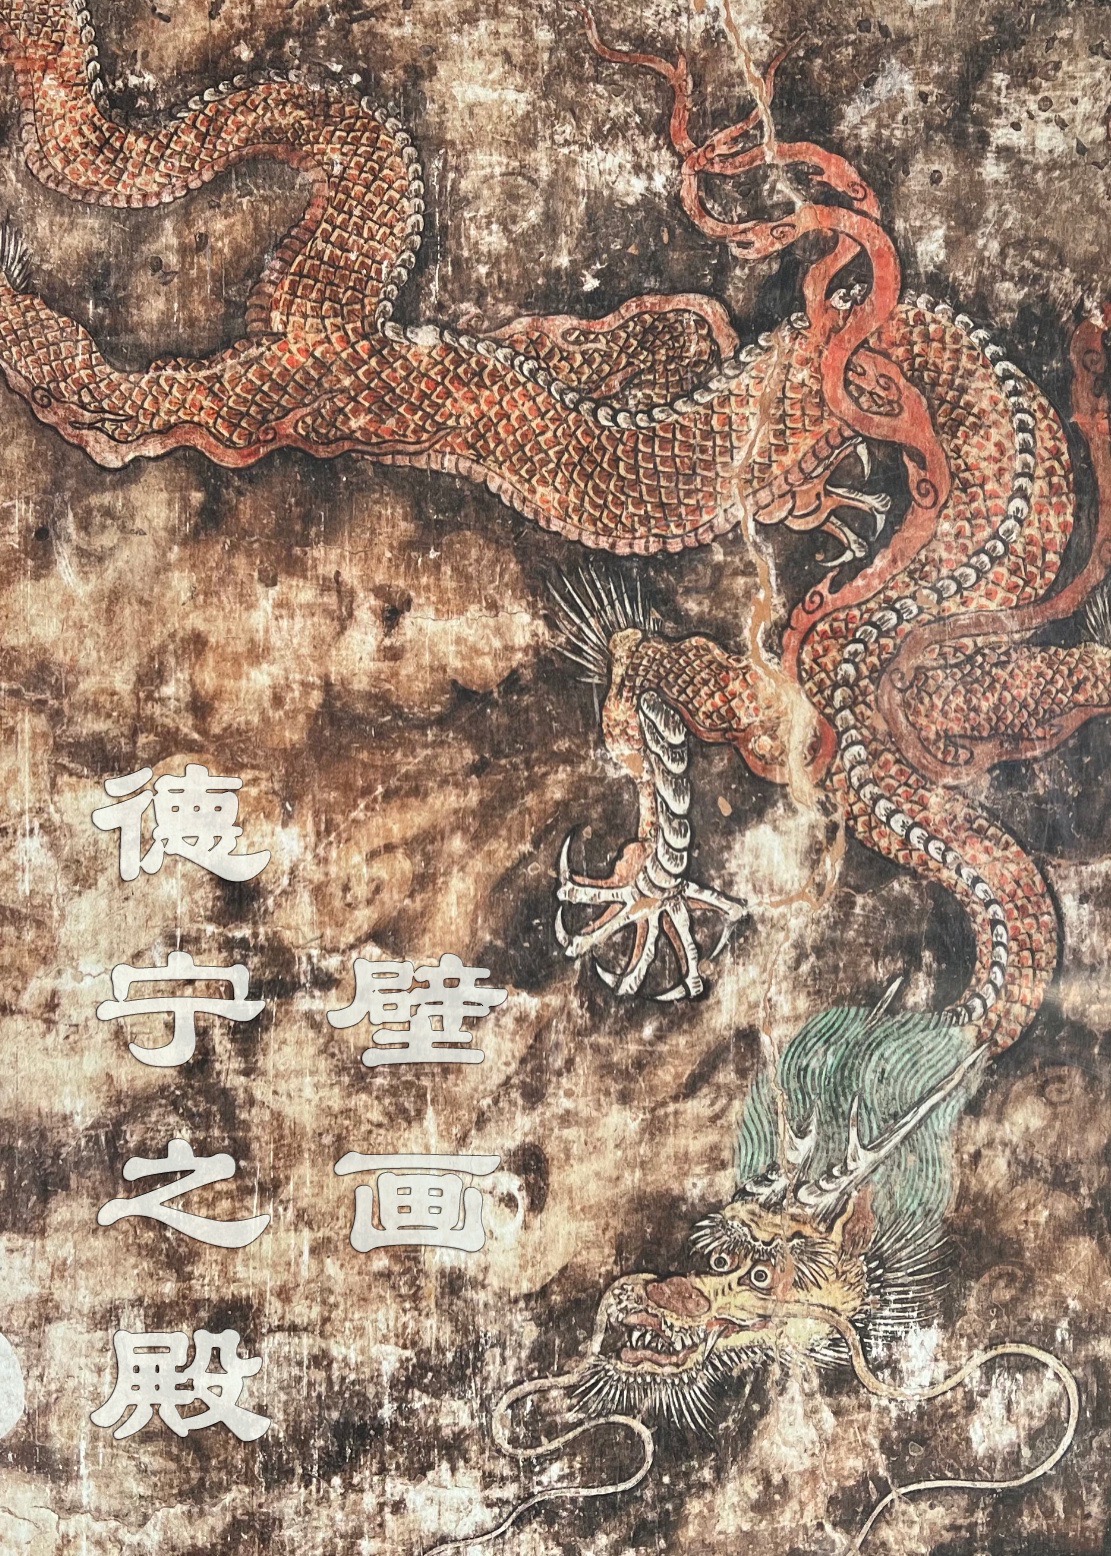 德宁之殿
壁画